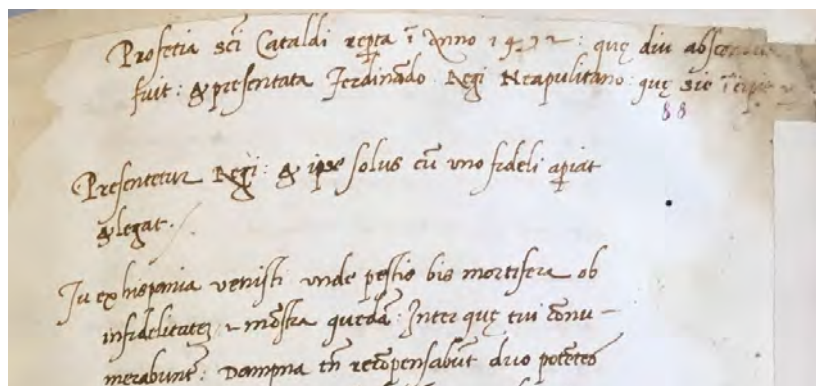 Profetia sc̄i Cataldi rep̱ta ī Anno 1492: quę diu abscon
fuit: & presentata Ferdinādo Regi Neapulitano: quę sic īcipit
88
Presentetur Regi: & ip̄e solus cū vno fideli ap̱iat
& legat.
Tu ex hispania venisti vnde pestis bis mortifera ob
infidelitatez & mōstra quedā: Inter quę tui cōnu-
merabunt̄: Dampna tn̄ recōpensabūt duo potētes